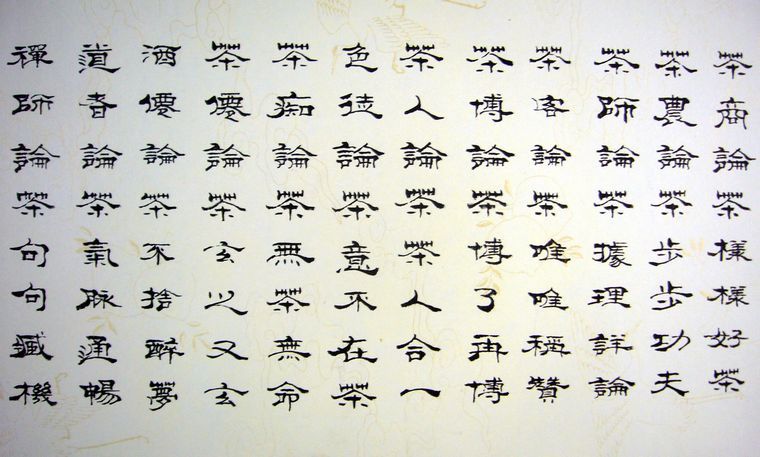 茶商論茶樣樣好茶
茶農論茶步步功夫
茶師論茶據理詳論
茶客論茶唯唯稱贊
茶博論茶博了再博
茶人論茶茶人合一
色徒論茶意不在茶
茶痴論茶無茶無命
茶僊論茶玄之又玄
酒僊論茶不捨醉夢
道者論茶氣脉通暢
禪師論茶句句藏機